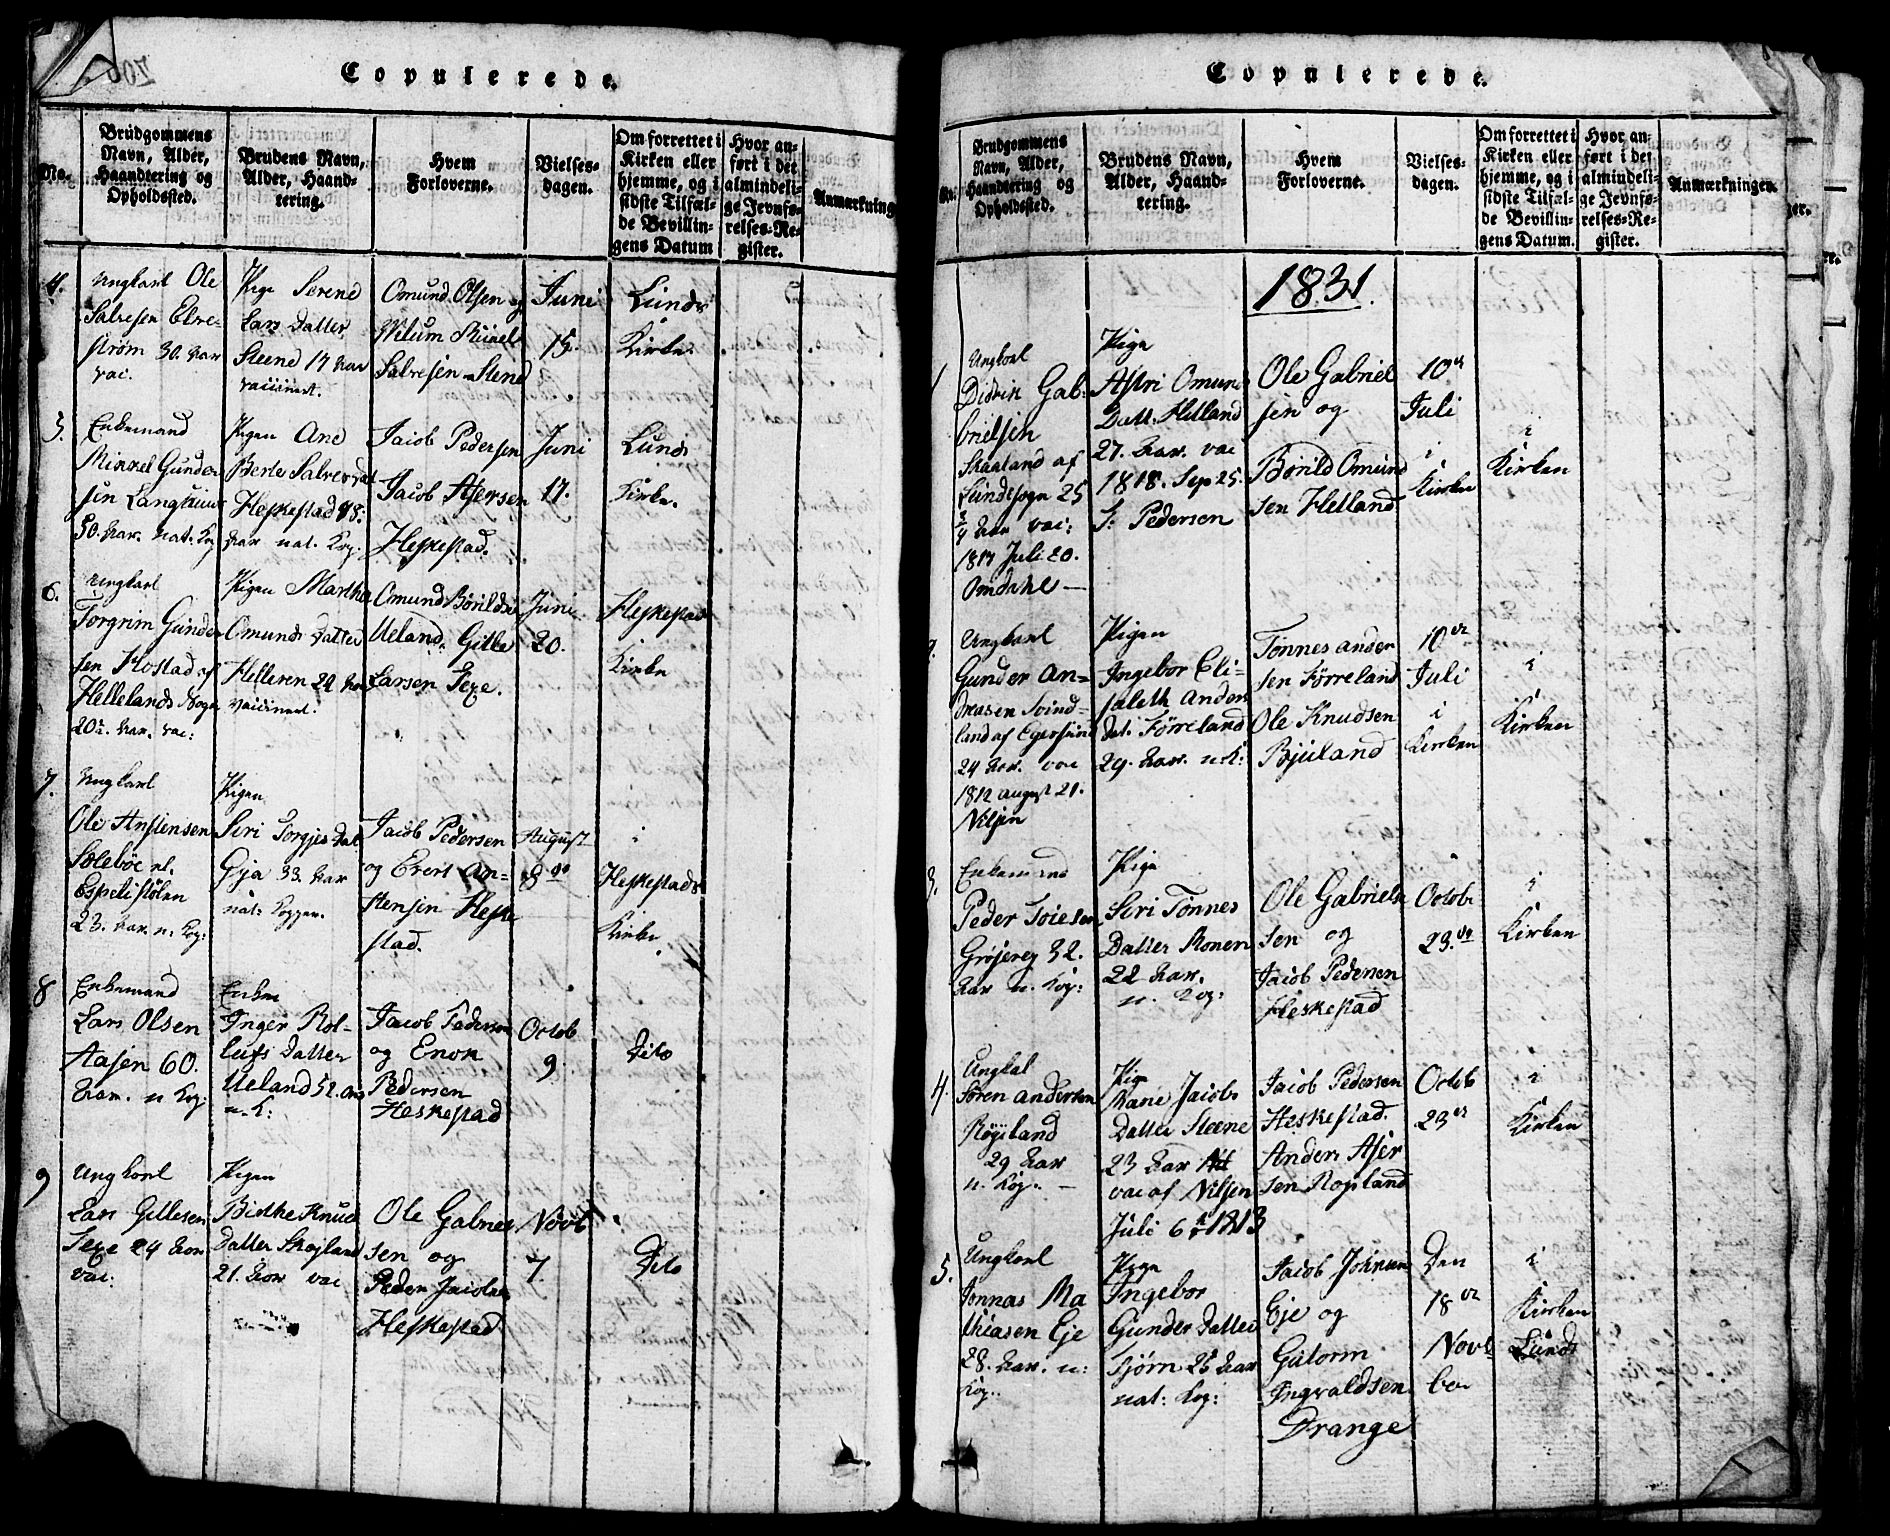 Copulerede.
No.
Brudgommens
Navn, Alder,
Haandtering og
Opholdssted.
Brudens Navn,
Alder, Haand-
tering.
Hvem
Forloverne.
Vielses-
dagen.
Om forrettet i
Kirken eller
hjemme, og i
sidste Tilfæl-
de Bevillin-
gens Datum
Hvor an-
ført i det
almindeli-
ge Jevnfø-
relses-Re-
gister.
Anmærkning
4.
Ungkarl Ole
Salvesen Elve-
strøm 30. Aar
vac.
Pige Serene
Lars Datter
Steene 17 Aar
vaccineret.
Omund Olsen og
Salvesen Stene
Juni
15.
Lunds
Kirke.
5.
Enkemand
Mikkel Gunder
sen
50. Aar. nat. Kop
Pigen Ane
Berte Salvesdat
Heskestad 48:
Aar nat. Kop:
Jacob Pedersen
Jacob Asersen
Heskestad.
Juni
17.
Lunds
Kirke.
6.
Ungkarl
Torgrim Gunder
sen Kostad af
Hellelands Sogn
20. Aar. vac:
Pigen Martha
Omunds Datter
Helleren 29 Aar
vaccineret.
Omund Børildsen
Ueland. Gitle
Larsen Sexe.
Juni
20.
Heskestad
Kirke
7.
Ungkarl
Ole Anstensen
Solebøe
23. Aar. n. Kop:
Pigen
Siri Torgjes Dat
Gya 33. Aar
nat: Kopper.
Jacob Pedersen
og Evert An-
stensen Heske
stad.
August
8de
i
Heskestads
Kirke
8
Enkemand
Lars Olsen
Aasen 60.
Aar. n Kop:
Enken
Inger Rol-
leifs Datter
Ueland 52. Aar
n. K:
Jacob Pedersen
og Enok
Pedersen
Heskestad
Octob
9.
Dito
9
Ungkarl
Lars Gitlesen
Sexe 24 Aar
vac:
Pigen
Birthe Knud
Datter Skojland
21. Aar vac
Ole Gabriel
sen og
Peder Jacobsen
Heskestad
Novb
7.
Dito
Copulerede.
No.
Brudgommens
Navn, Alder,
Haandtering og
Opholdssted.
Brudens Navn,
Alder, Haand-
tering.
Hvem
Forloverne.
Vielses-
dagen.
Om forrettet i
Kirken eller
hjemme, og i
sidste Tilfæl-
de Bevillin-
gens Datum.
Hvor an-
ført i det
almindeli-
ge Jevnfø-
relses-Re-
gister.
Anmærkninger.
1831.
1
Ungkarl
Didrik Gab-
brielsen
Skaaland af
Lundesogn 25
3/4 Aar vac:
1817 Juli 20.
Omdahl —
Pige
Astri Omunds
Datt. Helland
27. Aar. vac
1818. Sep 25.
S: Pedersen
Ole Gabriel
sen og
Børild Omund
sen Helland
10de
Juli
i
Kirken
i
Kirken
2.
Ungkarl
Gunder An-
dreasen Svind-
land af Egersund
24 Aar. vac
1812 august 21.
Nilsen
Pigen
Ingebor Eli-
sabeth Anders
Dat. Førreland
29. Aar. n. K:
Tønnes ander
sen Førreland
Ole Knudsen
Bjuland
10de
Juli
i
Kirken
i
Kirken
3.
Enkemand
Peder Toiesen
32.
Aar n. Kop:
Pige
Siri Tønnes
Datter Monen
22 Aar.
n. Kop:
Ole Gabriel
sen og
Jacob Pedersen
Heskestad
Octob
23.de
i
Kirken
4.
Ungkal
Søren andersen
Røgeland
29 Aar
n. Kop. —
Pige
Mane Jacobs
Datter Steene
23 Aar
vac af Nilsen
Juli 6te 1813
Jacob Pedersen
Heskestad.
Anders Aser
sen Rogland
Octob
23de
i
Kirken
5.
Ungkarl
Jonnas Ma
thiasen Eje
28. Aar. n:
Kop:
Pige
Ingebor
Gunders Datter
Bjørn 25 Aar
nat: Kop:
Jacob Johnsen
Eje og
Gutorm
Ingvaldsen
Drange
Den
18de
Novb
i
Kirken
Lunds